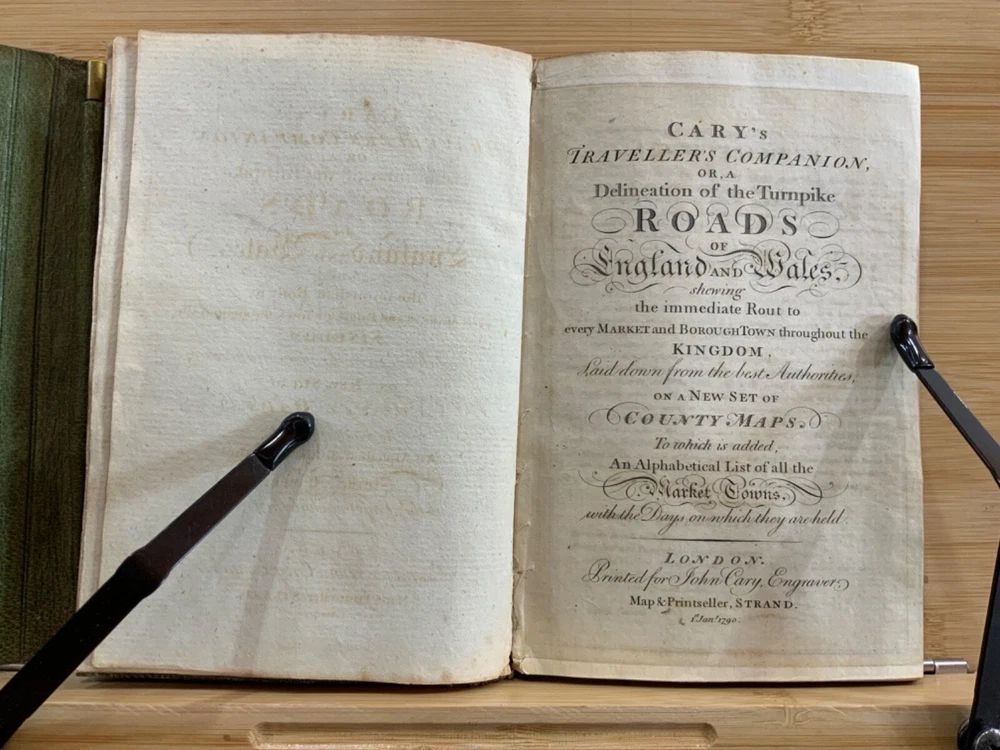 CARY'S
TRAVELLER'S COMPANION,
OR, A
Delineation of the Turnpike
ROADS
OF
England AND Wales;
shewing
the immediate Rout to
every MARKET and BOROUGH TOWN throughout the
KINGDOM,
Laid down from the best Authorities,
ON A NEW SET OF
COUNTY MAPS.
To which is added,
An Alphabetical List of all the
Market Towns,
with the Days on which they are held.
LONDON.
Printed for John Cary, Engraver,
Map & Printseller, STRAND.
1st Jany. 1790.